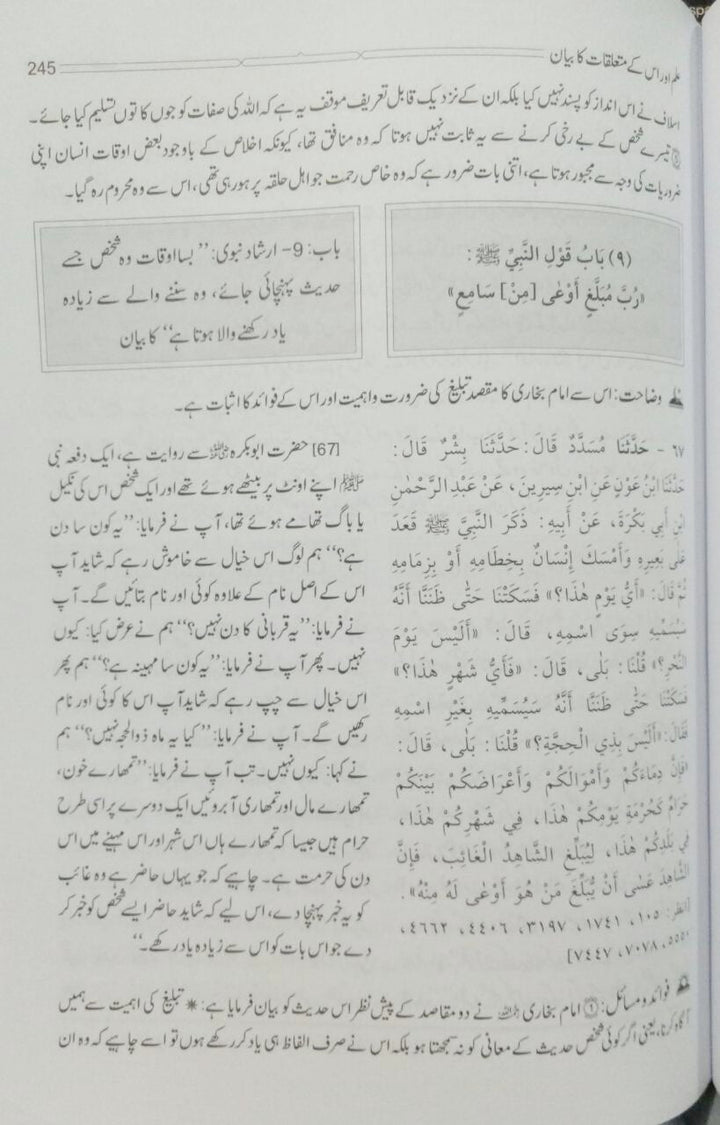 علم اور اس کے متعلقات کا بیان 245
اسلاف نے اس انداز کو پسند نہیں کیا بلکہ ان کے نزدیک قابل تعریف موقف یہ ہے کہ اللہ کی صفات کو جوں کا توں تسلیم کیا جائے۔
تیسرے شخص کے بے رخی کرنے سے یہ ثابت نہیں ہوتا کہ وہ منافق تھا، کیونکہ اخلاص کے باوجود بعض اوقات انسان اپنی
ضروریات کی وجہ سے مجبور ہوتا ہے، اتنی بات ضرور ہے کہ وہ خاص رحمت جو اہل حلقہ پر ہو رہی تھی، اس سے وہ محروم رہ گیا۔
(٩) بَابُ قَوْلِ النَّبِيِّ ﷺ :
«رُبَّ مُبَلَّغٍ أَوْعٰى [مِنْ] سَامِعٍ»
باب: 9- ارشاد نبوی: ’’بسا اوقات وہ شخص جسے
حدیث پہنچائی جائے، وہ سننے والے سے زیادہ
یاد رکھنے والا ہوتا ہے‘‘ کا بیان
وضاحت: اس سے امام بخاری کا مقصد تبلیغ کی ضرورت و اہمیت اور اس کے فوائد کا اثبات ہے۔
٦٧ - حَدَّثَنَا مُسَدَّدٌ قَالَ: حَدَّثَنَا بِشْرٌ قَالَ:
حَدَّثَنَا ابْنُ عَوْنٍ عَنِ ابْنِ سِيرِينَ، عَنْ عَبْدِ الرَّحْمٰنِ
ابْنِ أَبِي بَكْرَةَ، عَنْ أَبِيهِ: ذَكَرَ النَّبِيَّ ﷺ قَعَدَ
عَلٰى بَعِيرِهِ وَأَمْسَكَ إِنْسَانٌ بِخِطَامِهِ أَوْ بِزِمَامِهِ
ثُمَّ قَالَ: «أَيُّ يَوْمٍ هٰذَا؟» فَسَكَتْنَا حَتّٰى ظَنَنَّا أَنَّهُ
سَيُسَمِّيهِ سِوَى اسْمِهِ، قَالَ: «أَلَيْسَ يَوْمَ
النَّحْرِ؟» قُلْنَا: بَلٰى، قَالَ: «فَأَيُّ شَهْرٍ هٰذَا؟»
فَسَكَتْنَا حَتّٰى ظَنَنَّا أَنَّهُ سَيُسَمِّيهِ بِغَيْرِ اسْمِهِ
فَقَالَ: «أَلَيْسَ بِذِي الْحِجَّةِ؟» قُلْنَا: بَلٰى، قَالَ:
«فَإِنَّ دِمَاءَكُمْ وَأَمْوَالَكُمْ وَأَعْرَاضَكُمْ بَيْنَكُمْ
حَرَامٌ كَحُرْمَةِ يَوْمِكُمْ هٰذَا، فِي شَهْرِكُمْ هٰذَا،
فِي بَلَدِكُمْ هٰذَا، لِيُبَلِّغِ الشَّاهِدُ الْغَائِبَ، فَإِنَّ
الشَّاهِدَ عَسٰى أَنْ يُّبَلِّغَ مَنْ هُوَ أَوْعٰى لَهُ مِنْهُ».
[انظر: ١٠٥، ١٧٤١، ٣١٩٧، ٤٤٠٦، ٤٦٦٢،
٥٥٥٠، ٧٠٧٨، ٧٤٤٧]
[67] حضرت ابوبکرہ رضی اللہ عنہ سے روایت ہے، ایک دفعہ نبی
ﷺ اپنے اونٹ پر بیٹھے ہوئے تھے اور ایک شخص اس کی نکیل
یا باگ تھامے ہوئے تھا، آپ نے فرمایا: ’’یہ کون سا دن
ہے؟‘‘ ہم لوگ اس خیال سے خاموش رہے کہ شاید آپ
اس کے اصل نام کے علاوہ کوئی اور نام بتائیں گے۔ آپ
نے فرمایا: ’’یہ قربانی کا دن نہیں؟‘‘ ہم نے عرض کیا: کیوں
نہیں۔ پھر آپ نے فرمایا: ’’یہ کون سا مہینہ ہے؟‘‘ ہم پھر
اس خیال سے چپ رہے کہ شاید آپ اس کا کوئی اور نام
رکھیں گے۔ آپ نے فرمایا: ’’کیا یہ ماہ ذوالحجہ نہیں؟‘‘ ہم
نے کہا: کیوں نہیں۔ تب آپ نے فرمایا: ’’تمھارے خون،
تمھارے مال اور تمھاری آبروئیں ایک دوسرے پر اسی طرح
حرام ہیں جیسا کہ تمھارے ہاں اس شہر اور اس مہینے میں اس
دن کی حرمت ہے۔ چاہیے کہ جو یہاں حاضر ہے وہ غائب
کو یہ خبر پہنچا دے، اس لیے کہ شاید حاضر ایسے شخص کو خبر کر
دے جو اس بات کو اس سے زیادہ یاد رکھے۔‘‘
فوائد و مسائل: ① امام بخاری رحمہ اللہ نے دو مقاصد کے پیش نظر اس حدیث کو بیان فرمایا ہے: * تبلیغ کی اہمیت سے ہمیں
آگاہ کرنا، یعنی اگر کوئی شخص حدیث کے معانی کو نہ سمجھتا ہو بلکہ اس نے صرف الفاظ ہی یاد کر رکھے ہوں تو اسے چاہیے کہ وہ ان